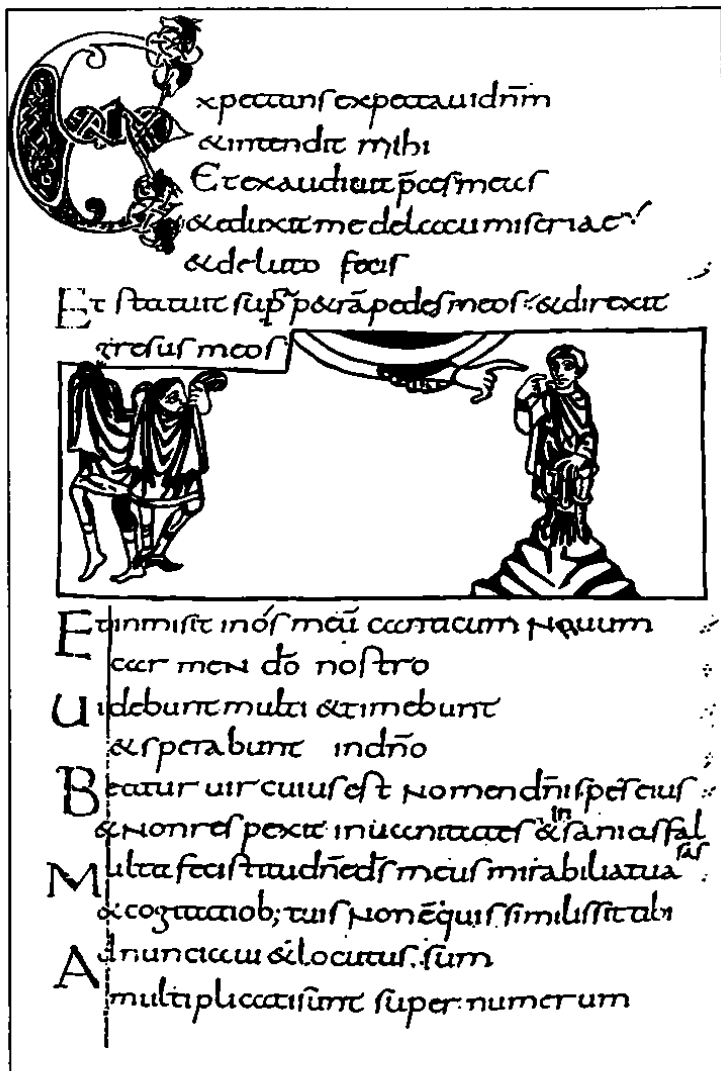 Expectans expectaui dn̄m
& intendit mihi
Et exaudiuit p̄ces meas
& eduxit me delacu miseriae
& deluto fecis
Et statuit sup̄ p&rā pedes meos & direxit
gresus meos
Et inmisit inos meū canticum nouum
carmen dō nostro
Uidebunt multi & timebunt
& sperabunt indn̄o
Beatus uir cuius est nomen dn̄i spes eius
& non respexit inuanitates & insanias falsas
Multa fecisti tu dn̄e ds̄ meus mirabilia tua
& cogitatiob; tuis non ē quis similis sit tibi
Adnunciaui & locutus sum
multiplicati sunt super numerum